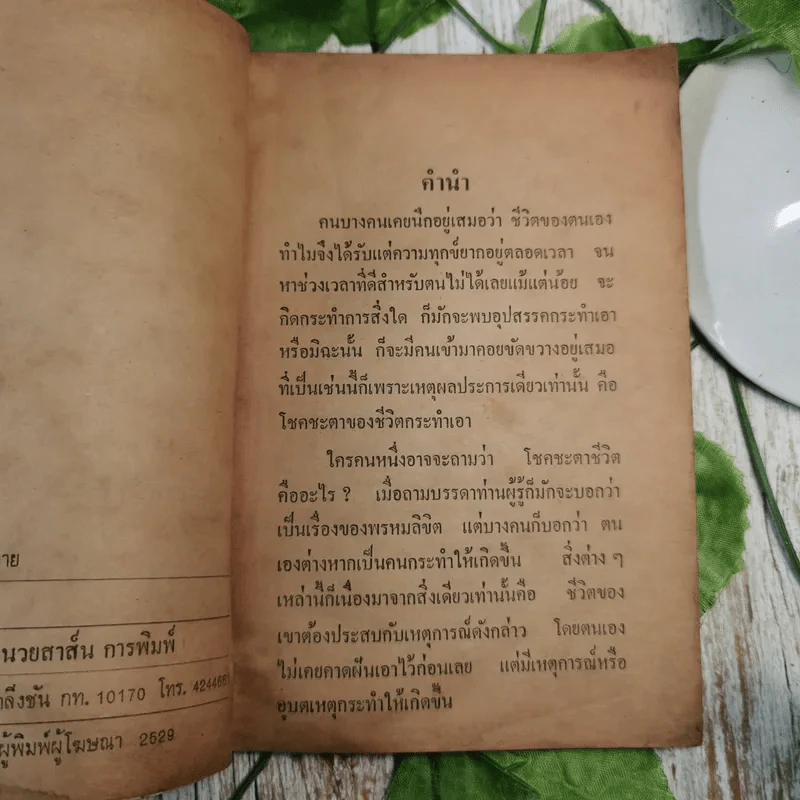 าย
นวยสาส์น การพิมพ์
ลิ่งชัน กท. 10170 โทร.
ผู้พิมพ์ผู้โฆษณา 2529
คำนำ
คนบางคนเคยนึกอยู่เสมอว่า ชีวิตของตนเอง
ทำไมจึงได้รับแต่ความทุกข์ยากอยู่ตลอดเวลา จน
หาช่วงเวลาที่ดีสำหรับตนไม่ได้เลยแม้แต่น้อย จะ
คิดกระทำการสิ่งใด ก็มักจะพบอุปสรรคกระทำเอา
หรือมิฉะนั้น ก็จะมีคนเข้ามาคอยขัดขวางอยู่เสมอ
ที่เป็นเช่นนี้ก็เพราะเหตุผลประการเดียวเท่านั้น คือ
โชคชะตาของชีวิตกระทำเอา
ใครคนหนึ่งอาจจะถามว่า โชคชะตาชีวิต
คืออะไร ? เมื่อถามบรรดาท่านผู้รู้ก็มักจะบอกว่า
เป็นเรื่องของพรหมลิขิต แต่บางคนก็บอกว่า ตน
เองต่างหากเป็นคนกระทำให้เกิดขึ้น สิ่งต่าง ๆ
เหล่านี้ก็เนื่องมาจากสิ่งเดียวเท่านั้นคือ ชีวิตของ
เขาต้องประสบกับเหตุการณ์ดังกล่าว โดยตนเอง
ไม่เคยคาดฝันเอาไว้ก่อนเลย แต่มีเหตุการณ์หรือ
อุบตเหตุกระทำให้เกิดขึ้น